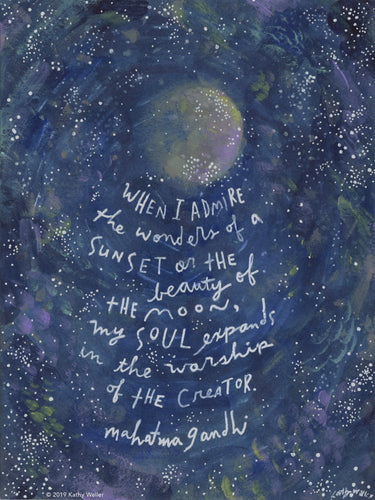 WHEN I ADMIRE
the wonders of a
SUNSET or THE
beauty of
THE MOON,
my SOUL expands
in the worship
of THE CREATOR.
mahatma gandhi
© 2019 Kathy Weller